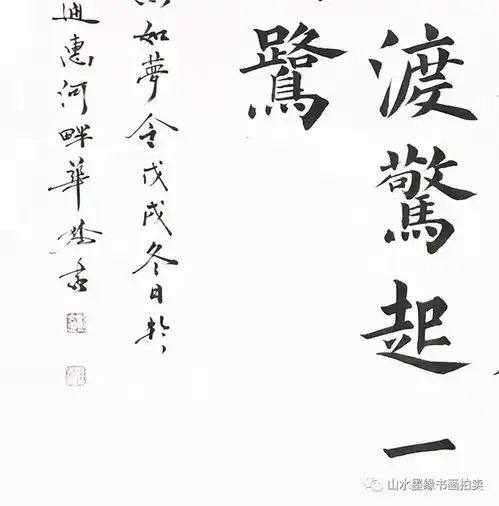 渡驚起一
鷺
如夢令戊戌冬日於
通惠河畔華
山水墨缘书画拍卖